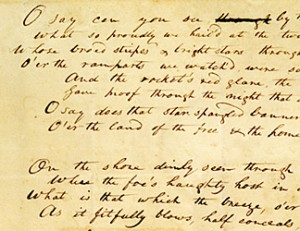 O say can you see ~~through~~ by
What so proudly we hail'd at the
Whose broad stripes & bright stars through
O'er the ramparts we watch'd, were so
And the rocket's red glare, the
Gave proof through the night that
O say does that star spangled banner
O'er the land of the free & the home
On the shore dimly seen through
Where the foe's haughty host in
What is that which the breeze, o'er
As it fitfully blows, half conceals